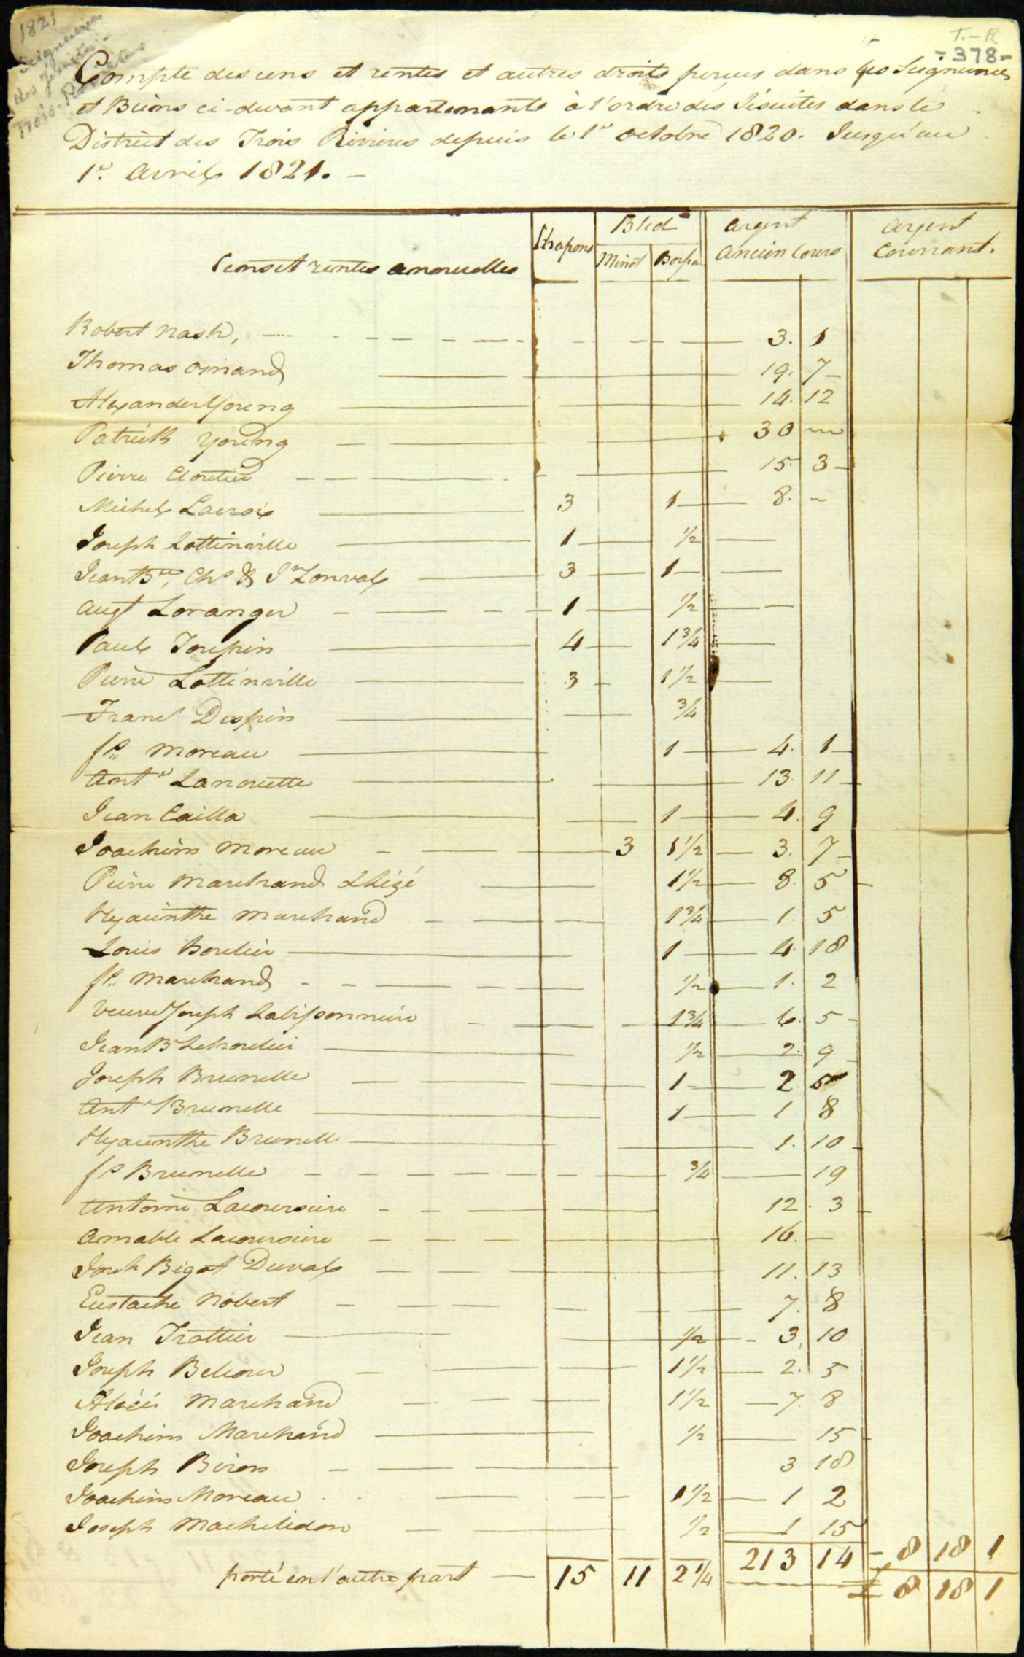 1821
Seigneuries
des Jésuites
Trois-Rivières
T.-R
-378-
Compte des cens et rentes et autres droits perçus dans les Seigneuries
et Biens ci-devant appartenants à l'ordre des Jésuites dans le
District des Trois Rivieres depuis le 1er octobre 1820. Jusqu'au
1er avril 1821. —
Cens et rentes annuelles Chapons Bled Argent Argent
Minot ancien Cours Courrant.
Robert Nash, 3. 1
Thomas 19. 7
Alexander Young 14. 12
Patrick Young 30
Pierre Cloutier 15 3
Michel Lacroix 3 1 8. -
Joseph Lottinville 1 ½
Jean Bte, Chs & Jh Lonval 3 1
Augt Loranger 1 ½
Paul Toupin 4 1¾
Pierre Lottinville 3 1½
Frans Dispins ¾
fs Moreau 1 4. 1
Ante Lanouette 13. 11
Jean Cailla 1 4. 9
Joachim Moreau 3 1½ 3. 7
Pierre Marchand 1½ 8. 5
Hyacinthe Marchand 1¾ 1. 5
Louis Bordier 1 4. 18
fs Marchand ½ 1. 2
Veuve Joseph Labissonnière 1¾ 6. 5
Jean B ½ 2. 9
Joseph Brunelle 1 2 5
Ante Brunelle 1 1 8
Hyacinthe Brunell 1. 10
fs Brunelle ¾ 19
Antoine Lacoursiere 12. 3
Amable Lacoursiere 16. —
Josh Bigot Duval 11. 13
Eustache Nobert 7. 8
Jean Trottier ½ 3 10
Joseph Belcour 1½ 2. 5
Alexis Marchand 1½ 7. 8
Joachim Marchand ½ 15
Joseph Biron 3 18
Joachim Moreau 1½ 1 2
Joseph ½ 1 15
213 14 8 18 1
porté en l'autre part 15 11 2¼ £ 8 18 1